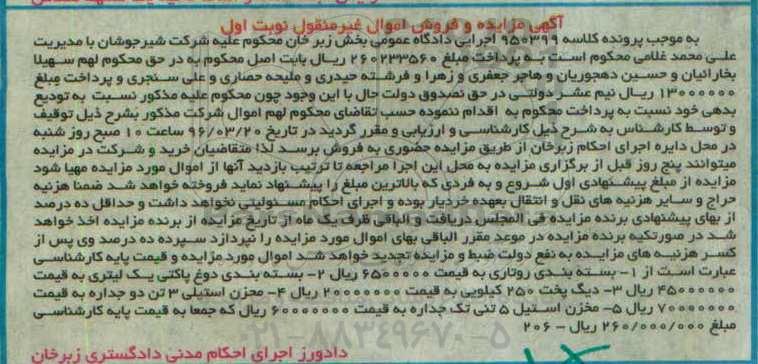 آگهی مزایده و فروش اموال غیرمنقول نوبت اول
به موجب پرونده کلاسه ۹۵۰۳۹۹ اجرایی دادگاه عمومی بخش زبر خان محکوم علیه شرکت شیرجوشان با مدیریت
علی محمد غلامی محکوم است به پرداخت مبلغ ۲۶۰۲۳۳۵۶۰ ریال بابت اصل محکوم به در حق محکوم لهم سهیلا
بخارائیان و حسین دهجوریان و هاجر جعفری و زهرا و فرشته حیدری و ملیحه حصاری و علی سنجری و پرداخت مبلغ
۱۳۰۰۰۰۰۰ ریال نیم عشر دولتی در حق صندوق دولت حال با این وجود چون محکوم علیه مذکور نسبت به تودیع
بدهی خود نسبت به پرداخت محکوم به اقدام ننموده حسب تقاضای محکوم لهم اموال شرکت مذکور بشرح ذیل توقیف
و توسط کارشناس به شرح ذیل کارشناسی و ارزیابی و مقرر گردید در تاریخ ۹۶/۰۳/۲۰ ساعت ۱۰ صبح روز شنبه
در محل دایره اجرای احکام زبرخان از طریق مزایده حضوری به فروش برسد لذا متقاضیان خرید و شرکت در مزایده
میتوانند پنج روز قبل از برگزاری مزایده به محل این اجرا مراجعه تا ترتیب بازدید آنها از اموال مورد مزایده مهیا شود
مزایده از مبلغ پیشنهادی اول شروع و به فردی که بالاترین مبلغ را پیشنهاد نماید فروخته خواهد شد ضمنا هزینه
حراج و سایر هزینه های نقل و انتقال بعهده خریدار بوده و اجرای احکام مسئولیتی نخواهد داشت و حداقل ده درصد
از بهای پیشنهادی برنده مزایده فی المجلس دریافت و الباقی ظرف یک ماه از تاریخ مزایده از برنده مزایده اخذ خواهد
شد در صورتیکه برنده مزایده در موعد مقرر الباقی بهای اموال مورد مزایده را نپردازد سپرده ده درصد وی پس از
کسر هزینه های مزایده به نفع دولت ضبط و مزایده تجدید خواهد شد اموال مورد مزایده و قیمت پایه کارشناسی
عبارت است از ۱- بسته بندی روتاری به قیمت ۶۵۰۰۰۰۰۰ ریال ۲- بسته بندی دوغ پاکتی یک لیتری به قیمت
۴۵۰۰۰۰۰۰ ریال ۳- دیگ پخت ۲۵۰ کیلویی به قیمت ۲۰۰۰۰۰۰۰ ریال ۴- مخزن استیلی ۳ تن دو جداره به قیمت
۷۰۰۰۰۰۰۰ ریال ۵- مخزن استیل ۵ تنی تک جداره به قیمت ۶۰۰۰۰۰۰۰ ریال که جمعا به قیمت پایه کارشناسی
مبلغ ۲۶۰/۰۰۰/۰۰۰ ریال - ۲۰۶
۰۲۱-۸۸۳۴۹۶۷۰-۵
دادورز اجرای احکام مدنی دادگستری زبرخان